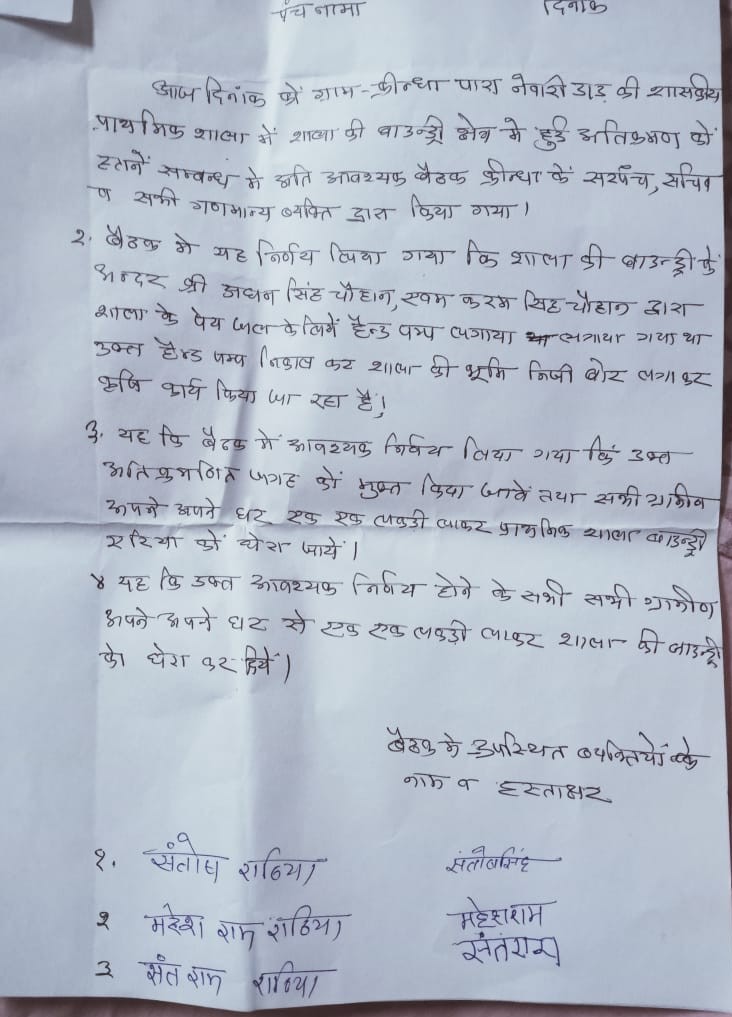 पंचनामा दिनांक
आज दिनांक को ग्राम-क्रोन्धा पारा नेवारी डाड़ की शासकीय
प्राथमिक शाला में शाला की बाउन्ड्री क्षेत्र मे हुई अतिक्रमण को
हटानें सम्बन्ध मे अति आवश्यक बैठक क्रोन्धा के सरपंच, सचिव
व सभी गणमान्य व्यक्ति द्वारा किया गया।
2. बैठक मे यह निर्णय लिया गया कि शाला की बाउन्ड्री के
अन्दर श्री जधन सिंह चौहान, एवम करम सिंह चौहान द्वारा
शाला के पेय जल के लिये हैन्ड पम्प लगाया लगाया गया था
उक्त हैन्ड पम्प निकाल कर शाला की भूमि निजी बोर लगा कर
कृषि कार्य किया जा रहा है।
3. यह कि बैठक में आवश्यक निर्णय लिया गया कि उक्त
अतिक्रमणित जगह को मुक्त किया जावें तथा सभी ग्रामीण
अपने अपने घर एक एक लकड़ी लाकर प्राथमिक शाला बाउन्ड्री
एरिया को घेरा जाये।
४ यह कि उक्त आवश्यक निर्णय होने के सभी सभी ग्रामीण
अपने अपने घर से एक एक लकड़ी लाकर शाला की बाउन्ड्री
को घेरा कर दिये।
बैठक मे उपस्थित व्यक्तियों के
नाम व हस्ताक्षर
१. संतोष राठिया संतोषसिंह
२ महेश राम राठिया महेशराम
३ संत राम राठिया संतराम